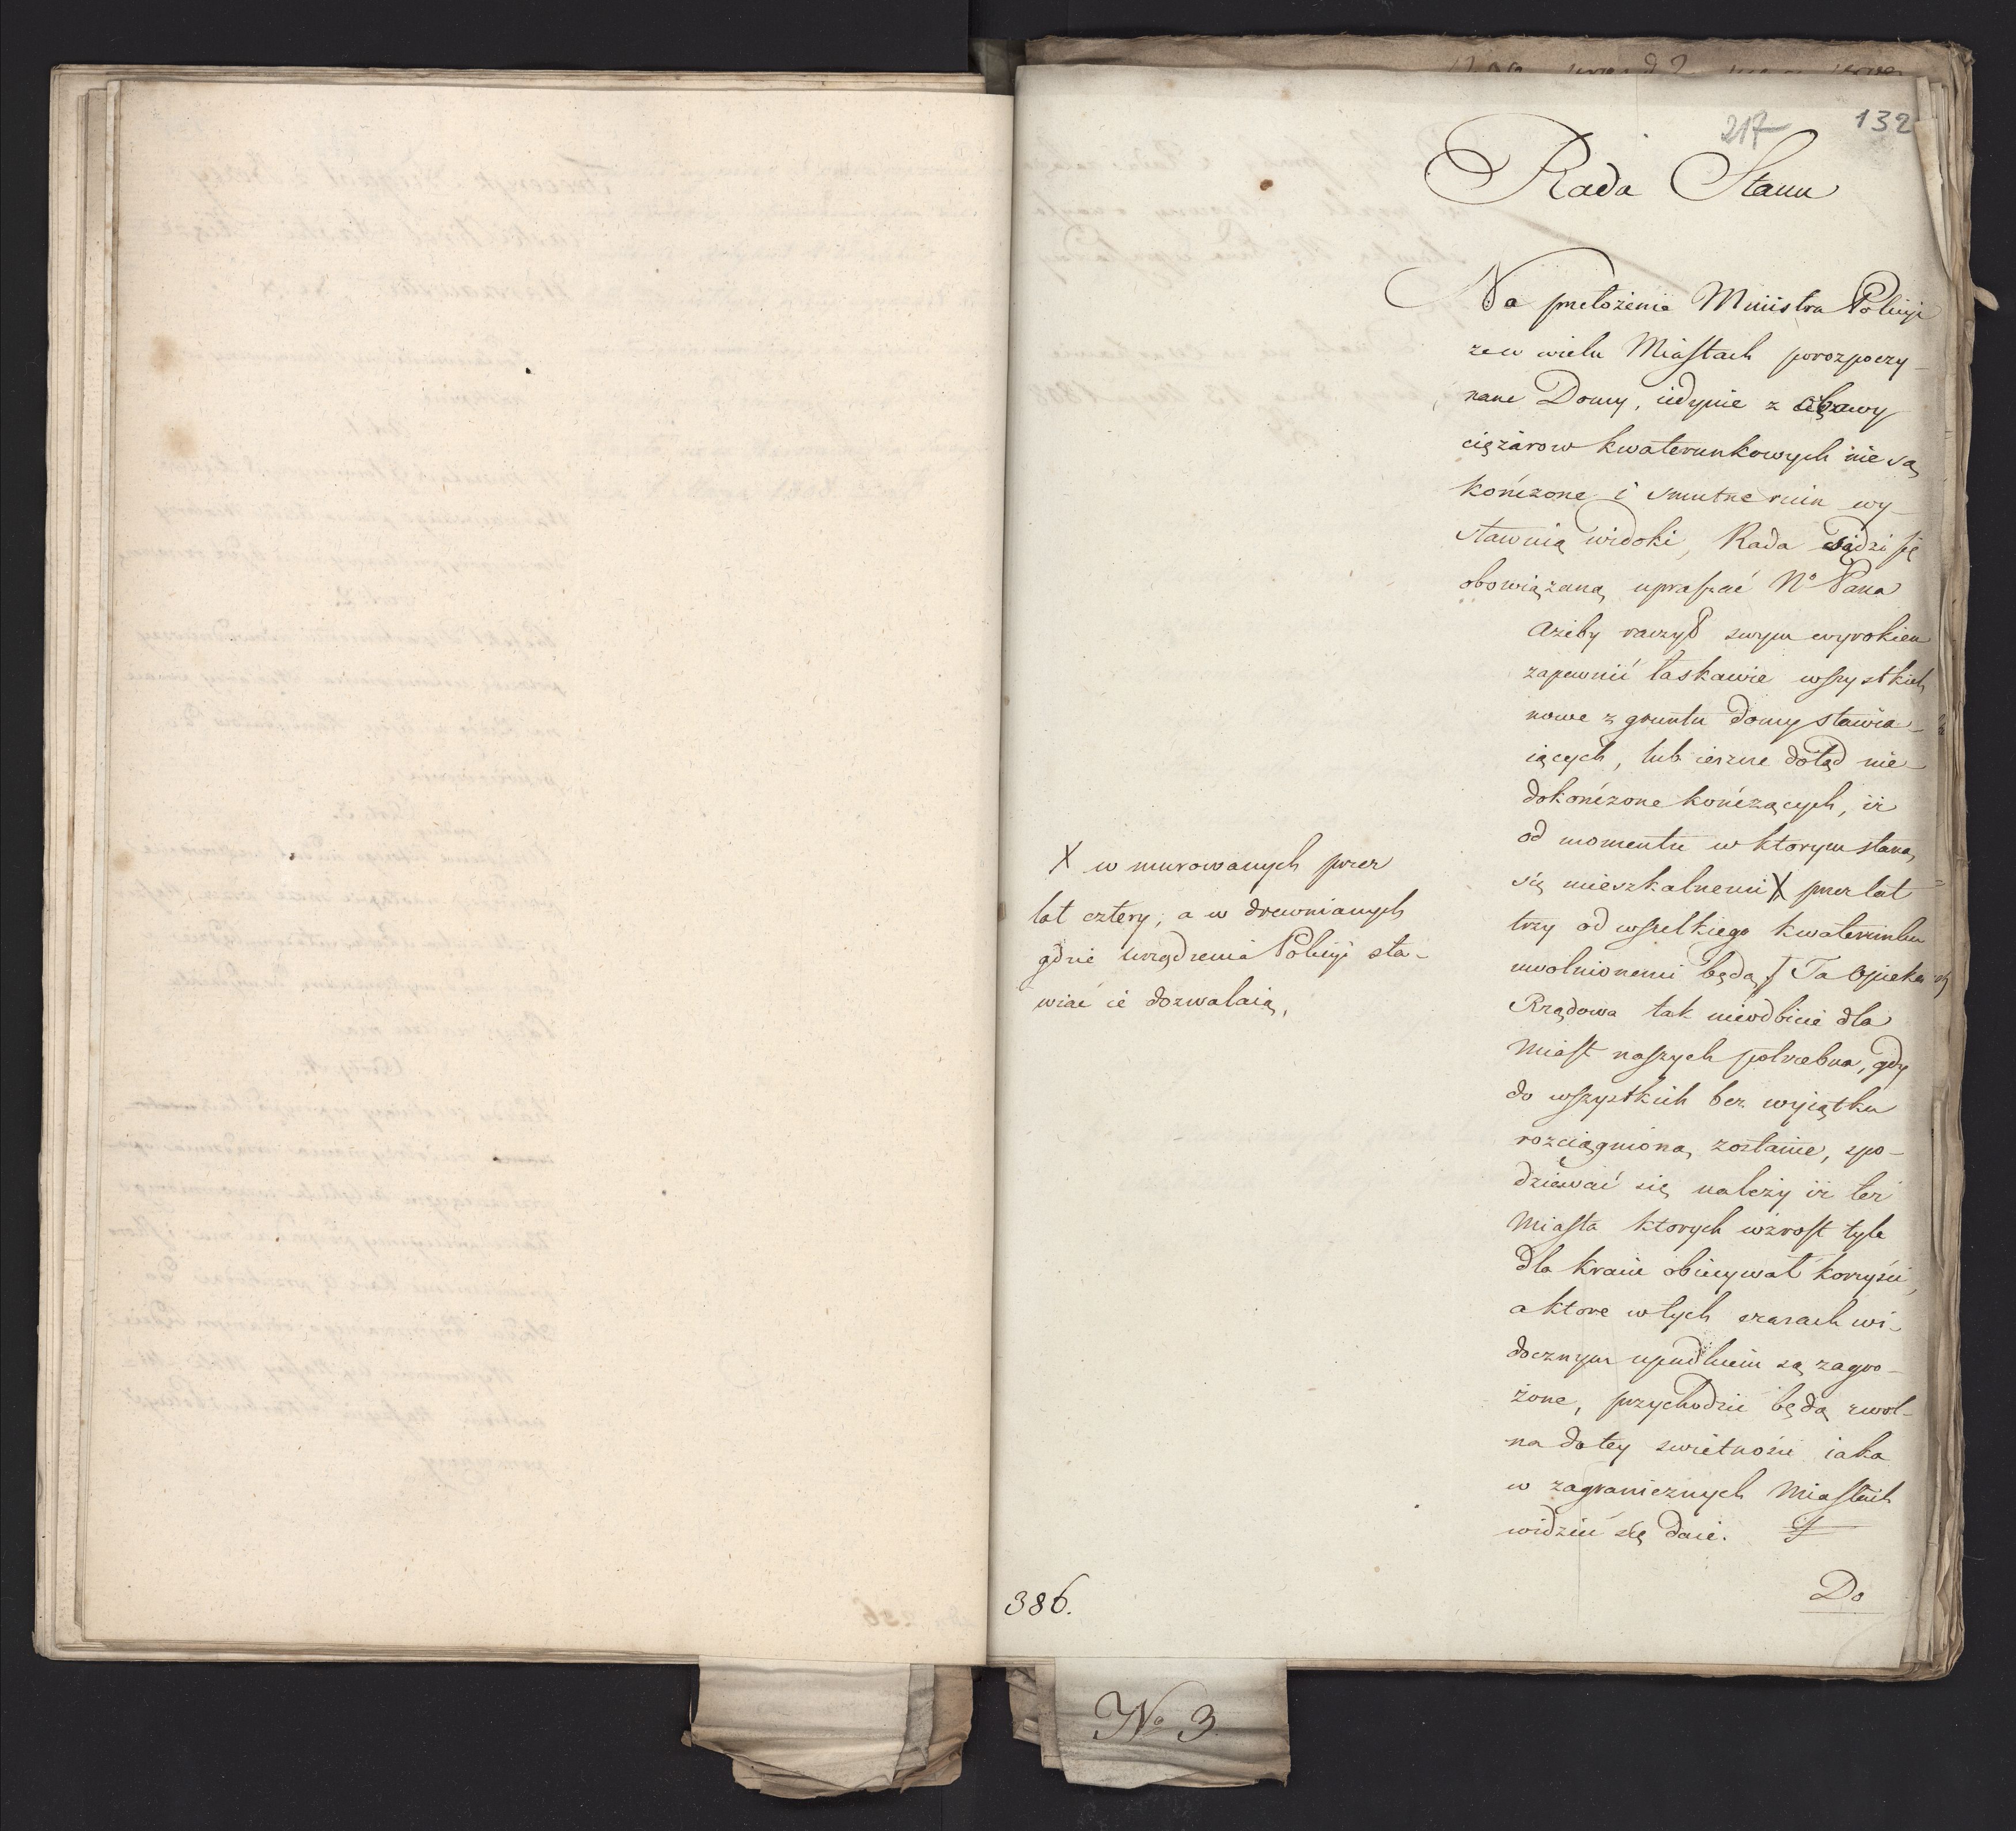 217 132
Rada Stanu
Na przełożenie Ministra Policyi
że w wielu Miastach porozpoczy-
nane Domy, iedynie z obawy
ciężarow kwaterunkowych nie są
kończone i smutne ruin wy-
stawuią widoki, Rada sądzi się
obowiązaną upraszać N° Pana
Ażeby raczył swym wyrokiem
zapewnić łaskawie wszystkich
nowe z gruntu domy stawia-
iących, lub ieszcze dotąd nie-
dokończone kończących, iż
od momentu w ktorym staną
się mieszkalnemi X przez lat
trzy od wszelkiego kwaterunku
uwolnionemi będą. Ta Opieka
Rządowa tak nieodbicie dla
Miast naszych potrzebna, gdy
do wszystkich bez wyiątku
rozciągnioną zostanie, spo-
dziewać się należy iż też
Miasta ktorych wzrost tyle
dla kraiu obiecywał korzyści,
a ktore w tych czasach wi-
docznym upadkiem są zagro-
żone, przychodzić będą zwol-
na do tey swietności iaka
w zagranicznych Miastach
widzieć się daie.
Do
X w murowanych przez
lat cztery, a w drewnianych
gdzie urządzenia Policyi sta-
wiać ie dozwalaią,
386.
No 3.